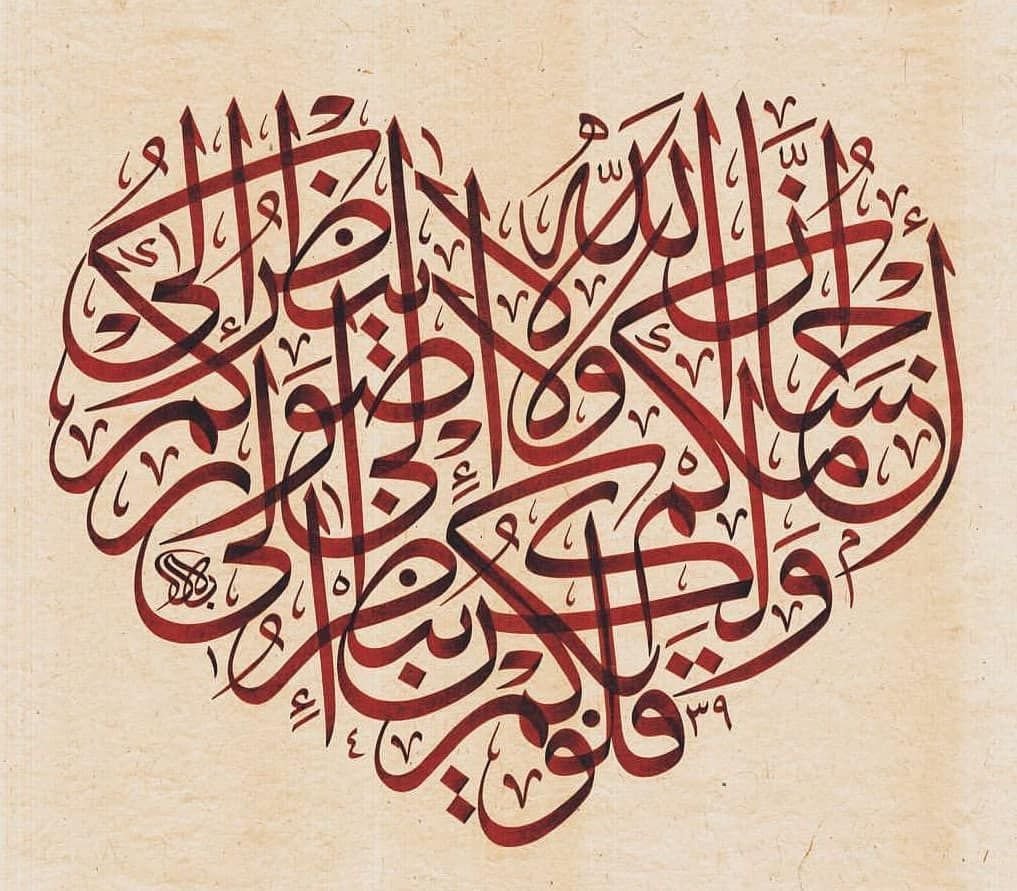 إِنَّ اللّٰهَ لَا يَنْظُرُ إِلَى أَجْسَامِكُمْ وَلَا إِلَى صُوَرِكُمْ وَلَكِنْ يَنْظُرُ إِلَى قُلُوبِكُمْ
١٤٣٩